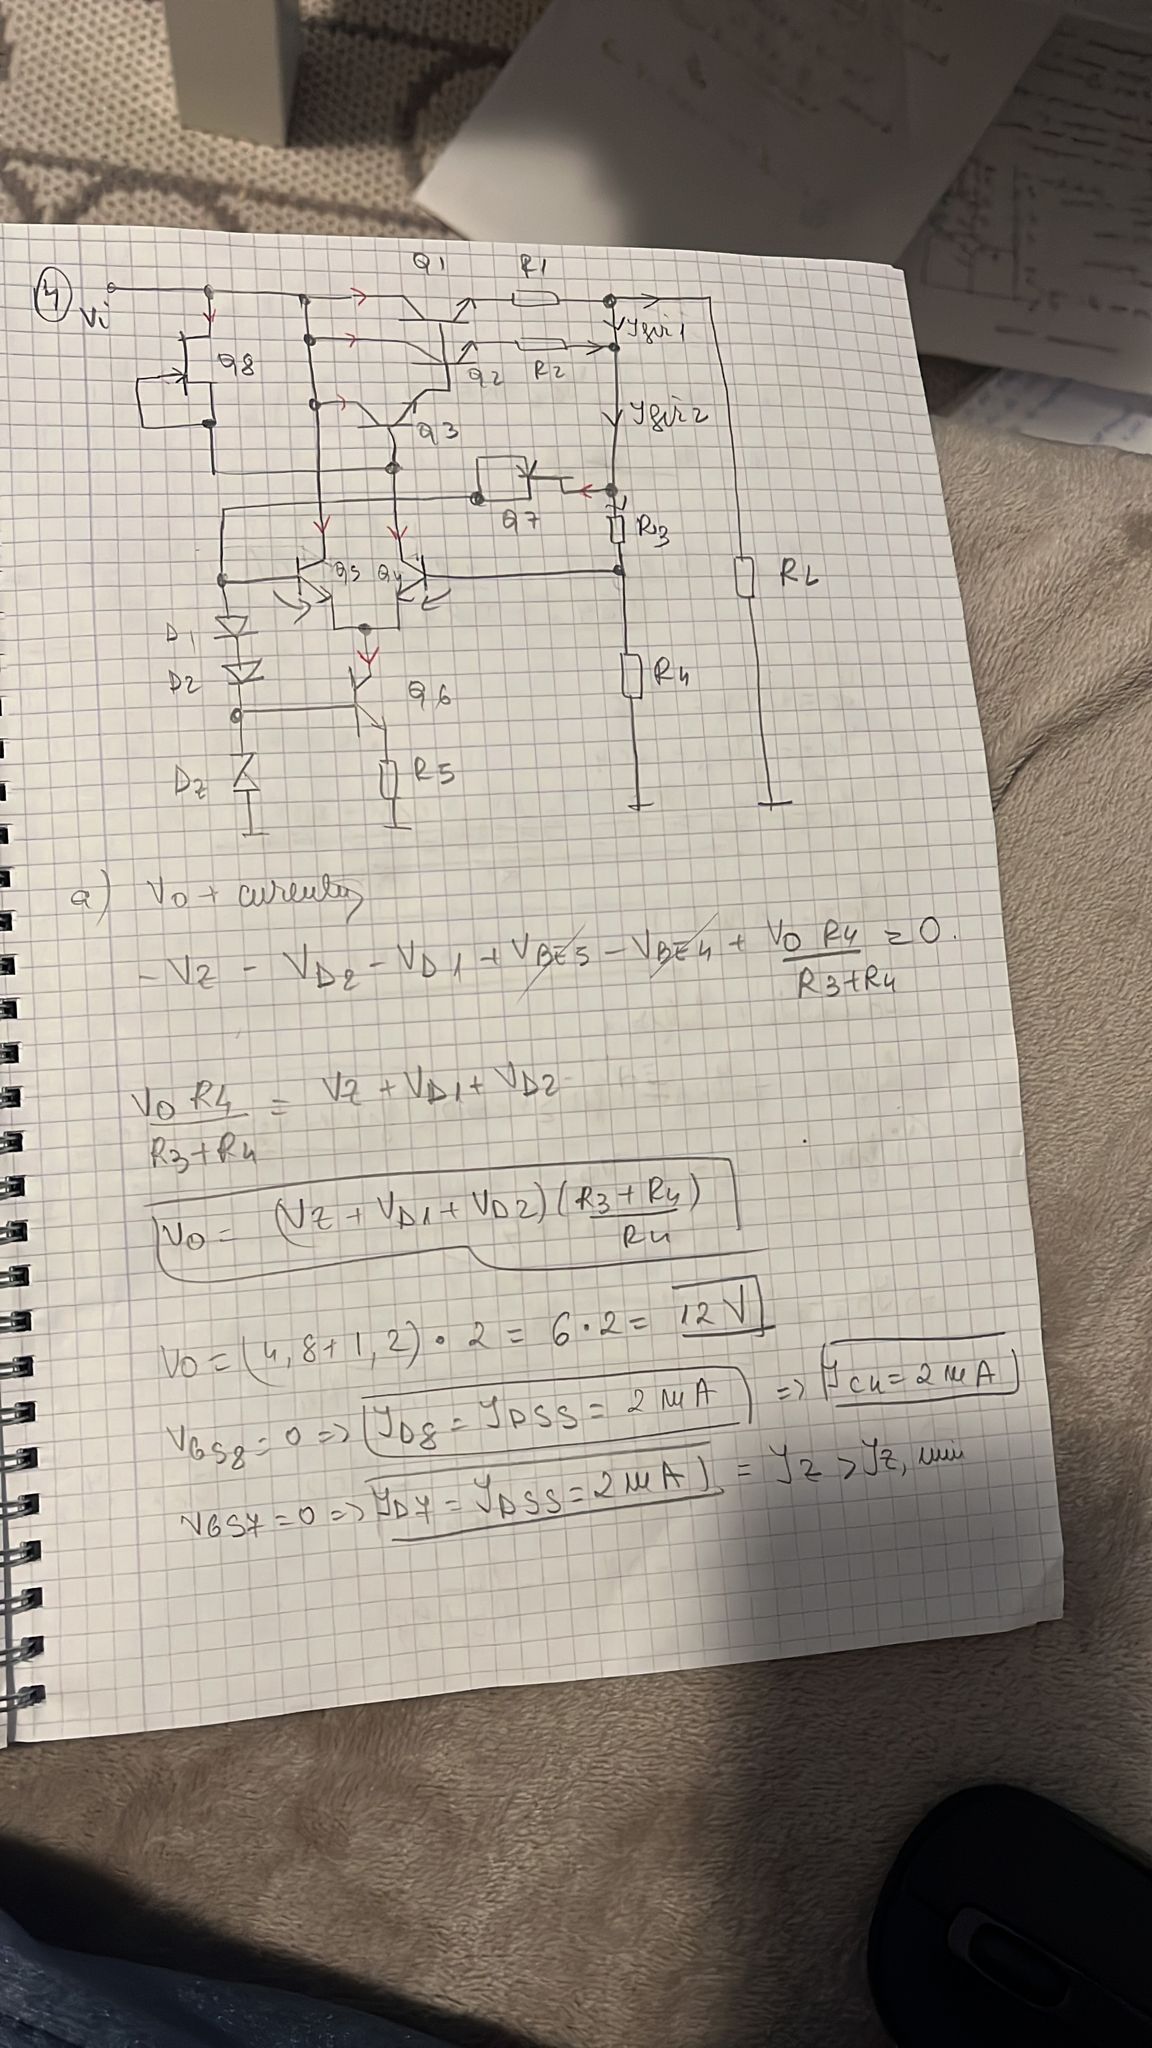 4
Q1 R1
Vi
Ydiv1
Q8
Q2 R2
Q3
Ydiv2
Q7
R3
Q5 Q4
RL
D1
D2
Q6
R4
DZ
R5
a) V0 + curenti
- VZ - VD2 - VD1 + VBE5 - VBE4 + V0 R4 / R3+R4 = 0.
V0 R4 / R3+R4 = VZ + VD1 + VD2
V0 = (VZ + VD1 + VD2) (R3 + R4 / R4)
V0 = (4,8 + 1,2) · 2 = 6 · 2 = 12 V
VGS8 = 0 => ID8 = IDSS = 2 mA => IC4 = 2 mA
VGS7 = 0 => ID7 = IDSS = 2 mA = IZ > IZ, min